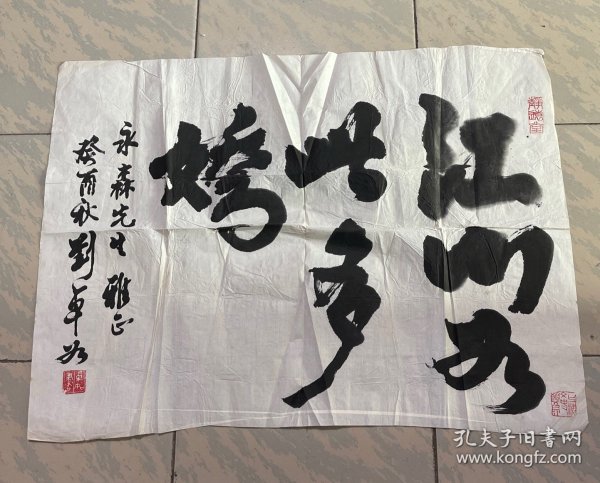 江山如
此多
娇
永森先生雅正
癸酉秋刘革如
孔夫子旧书网
www.kongfz.com